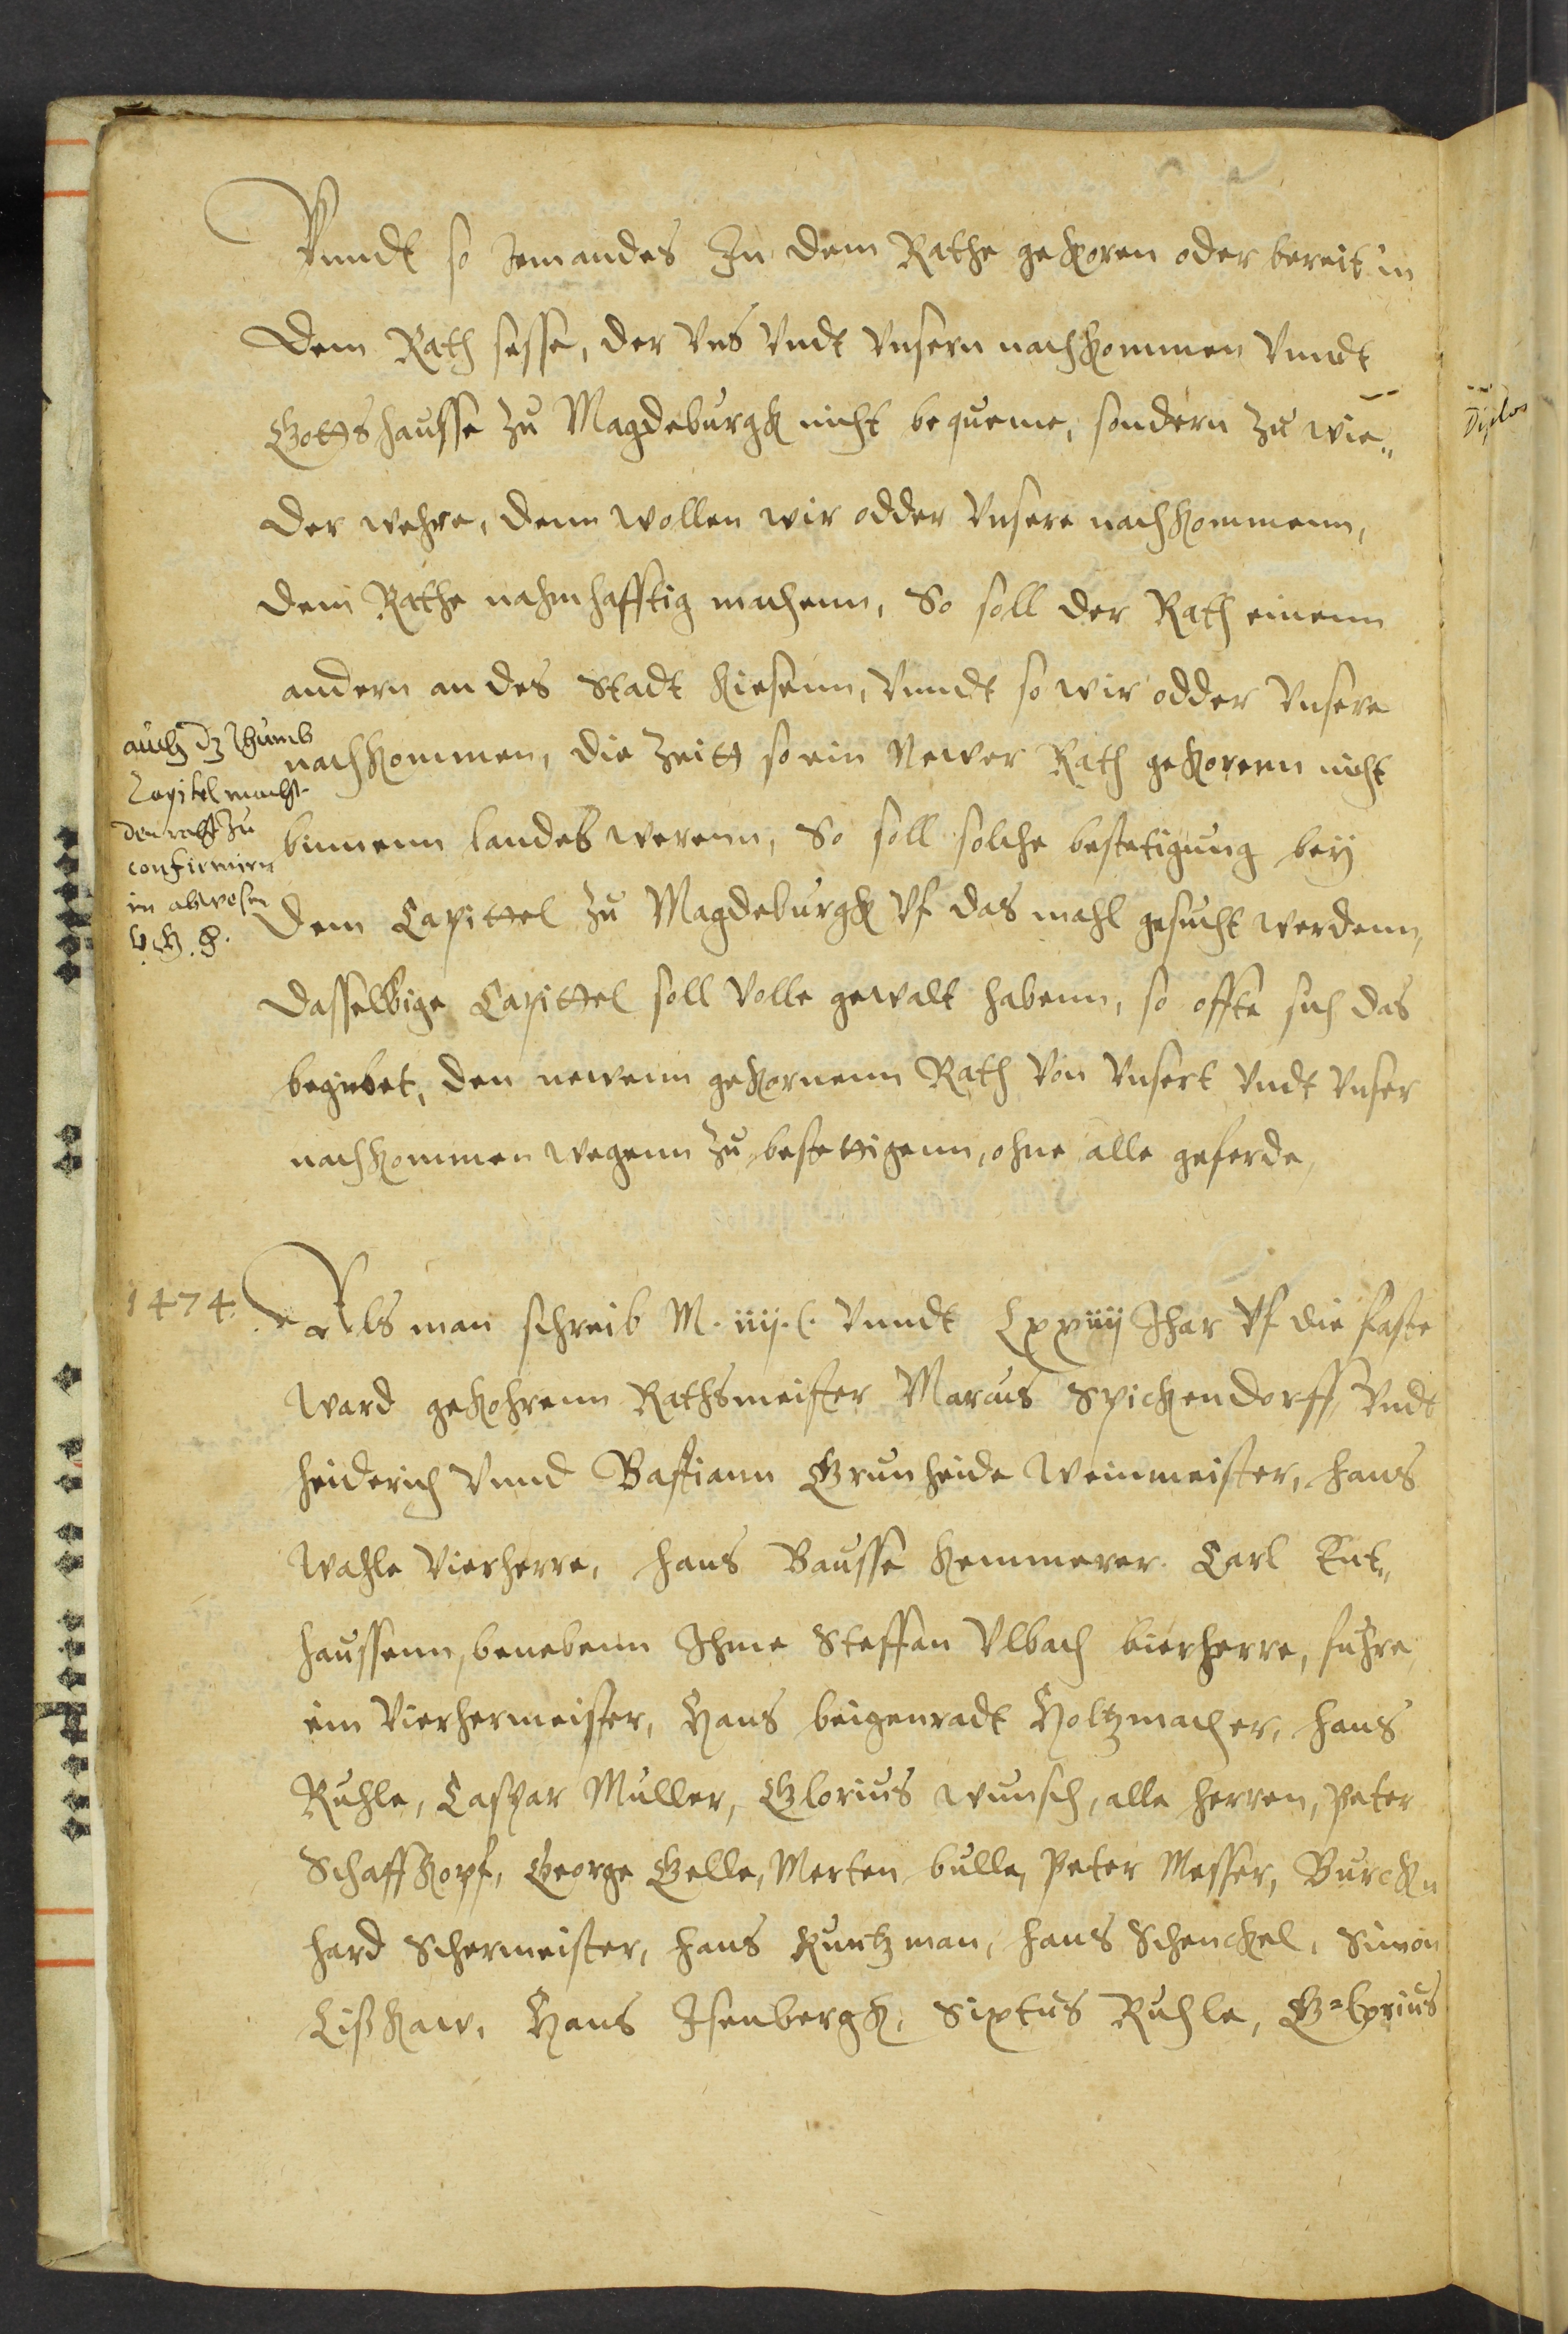 Vnndt so Jemandes Zu dem Rathe gekoren oder bereit in
dem Rath sesse, der Vns Vndt Vnsern nachkommen Vnndt
Gottshausse zu Magdeburgk nicht bequeme, sondern zu wie„
der wehre, denn wollen wir odder Vnsere nachkommenn,
dem Rathe nahmhafftig machenn, So soll der Rath einenn
andern an des Stadt kiesenn, Vnndt so wir odder Vnsere
nachkommen, die Zeitt so ein Newer Rath gekorenn nicht
binnenn landes werenn, So soll solche bestetigung bey
dem Capittel zu Magdeburgk Vf das mahl gesucht werdenn,
dasselbige Capittel soll Volle gewalt habenn, so offte sich das
begiebet, den newenn gekornenn Rath Von Vnsert Vndt Vnser
nachkommen wegenn zu bestettigenn, ohne alle geferde,
auch dz Thumb
Capitel macht
den raht zu
confirmirn
in abwesen
1474.
Als man schreib M. iiij. C. Vnndt Lxxiiij Jhar Vf die faste
ward gekohrenn Rathsmeister Marcus Spickendorff, Vndt
heiderich Vnnd Bastiann Grunheide Weinmeister, hans
Wahle Vierherre, hans Bausse kemmerer. Carl Ent„
haussenn, benebenn Jhme Steffan Vlbach bierherre, fuhre
ein Vierhermeister, Hans beigenradt Holtzmacher, hans
Ruhle, Caspar Muller, Glorius wunsch, alle herren, Peter
Schaffkopf, George Gelle, Merten bulle, Peter Messer, Burck„
hard Schermeister, hans Kuntzman, hans Schenckel, Simon
Lißkaw, Hans Jsenbergk, Sixtus Ruhle, Glorius